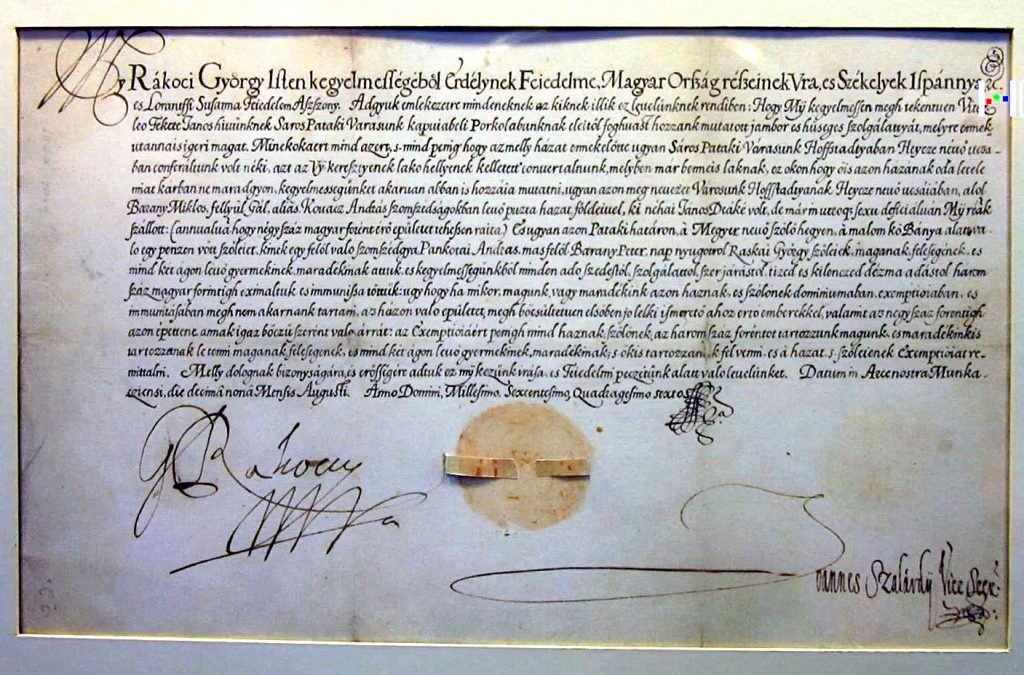 My Rákoci György Isten kegyelmességéből Erdélynek Feiedelme, Magyar Orság részeinek Vra, es Székelyek Ispánnya etc.
es Lorantffi Susanna Feiedelem Aszszony. Adgyuk emlekezetre mindeneknek az kiknek illik ez leuelünknek rendiben: Hogy Mÿ kegyelmessen megh tekentuen Vitez
leo Fekete Janos hiuünknek Saros Pataki Varasunk kapui abeli Porkolabunknak eleitöl foghuast hozzank mutatott jambor es hüséges szolgálattyát, melyre ennek
utanna is igeri magat. Minekokaert mind azert, s mind penig hogy az melly házat ennekelötte ugyan Sáros Pataki Várasunk Hoffstadtyaban Heycze neuö ucsa-
ban conferaltunk volt néki, azt az Vÿ keresztyenek lako hellyenek kelletett convertalnunk, melyben már bennek is laknak, ez okon hogy ö is azon házanak oda letele
miat karban ne maradgyon, kegyelmessegünket akaruan abban is hozzáia mutatni, ugyan azon meg neuezet Városunk Hoffstadtyának Heycze neuö ucsáiaban, alol
Barany Miklos, fellyül Gál, aliàs Kouacz András szomszedságokban leuö puzta hazat földeiuel, ki nehai Janos Deáké volt, de már utroq; sexu deficialuan Mÿ reák
szállott: (annualuá hogy négy száz magyar forint érö epületet tehessen raita) Es ugyan azon Pataki határon, à Megyer neuö szölö hegyen, à malom kö Bánya alatt va-
lo egy penzen vött szöleiet, kinek egy felöl valo szomszedgya Pankotai Andras, mas felöl Barany Peter, nap nyugotrol Raskai György szöleiek, maganak, feleségenek, es
mind ket agon leuö gyermekinek, maradekinak attuk, es kegyelmessegunkböl minden ado szedestöl, szolgálattol, szer járástol, tized es kilenczed dezma adástol harom
száz magyar forintigh eximaltuk es immunissá töttük: ugy hogy ha mikor, magunk, vagy maradékink azon haznak, es szölönek dominiumaban, exemptioiaban, es
immunitásaban megh nem akarnank tartani, az házon valo epületet, megh böcsültetuen elsöben jo lelki ismeretö ahoz ertö emberekkel, valamit az negy száz forintigh
azon epittene, annak igaz böczü szerent valo árrát: az Exemptioiáert penigh mind haznak, szölönek, az harom száz forintot tartozzunk magunk, es maradekink is
tartozzanak le tenni maganak, feleségenek, es mind két ágon leuö gyermekinek, maradékinak; s ök is tartozzanak fel venni, es à házat, s szöleienek Exemptioiat re-
mittalni. Melly dolognak bizonyságára, es erösségére adtuk ez mÿ kezünk irása, es Feiedelmi peczétünk alatt valo leuelünket. Datum in Arce nostra Munka-
cziensi, die decimâ nonâ Mensis Augusti. Anno Domini, Millesimo, Sexcentesimo, Quadragesimo sexto.
G Rakoczy
Joannes Szalárdÿ Vice Secr: